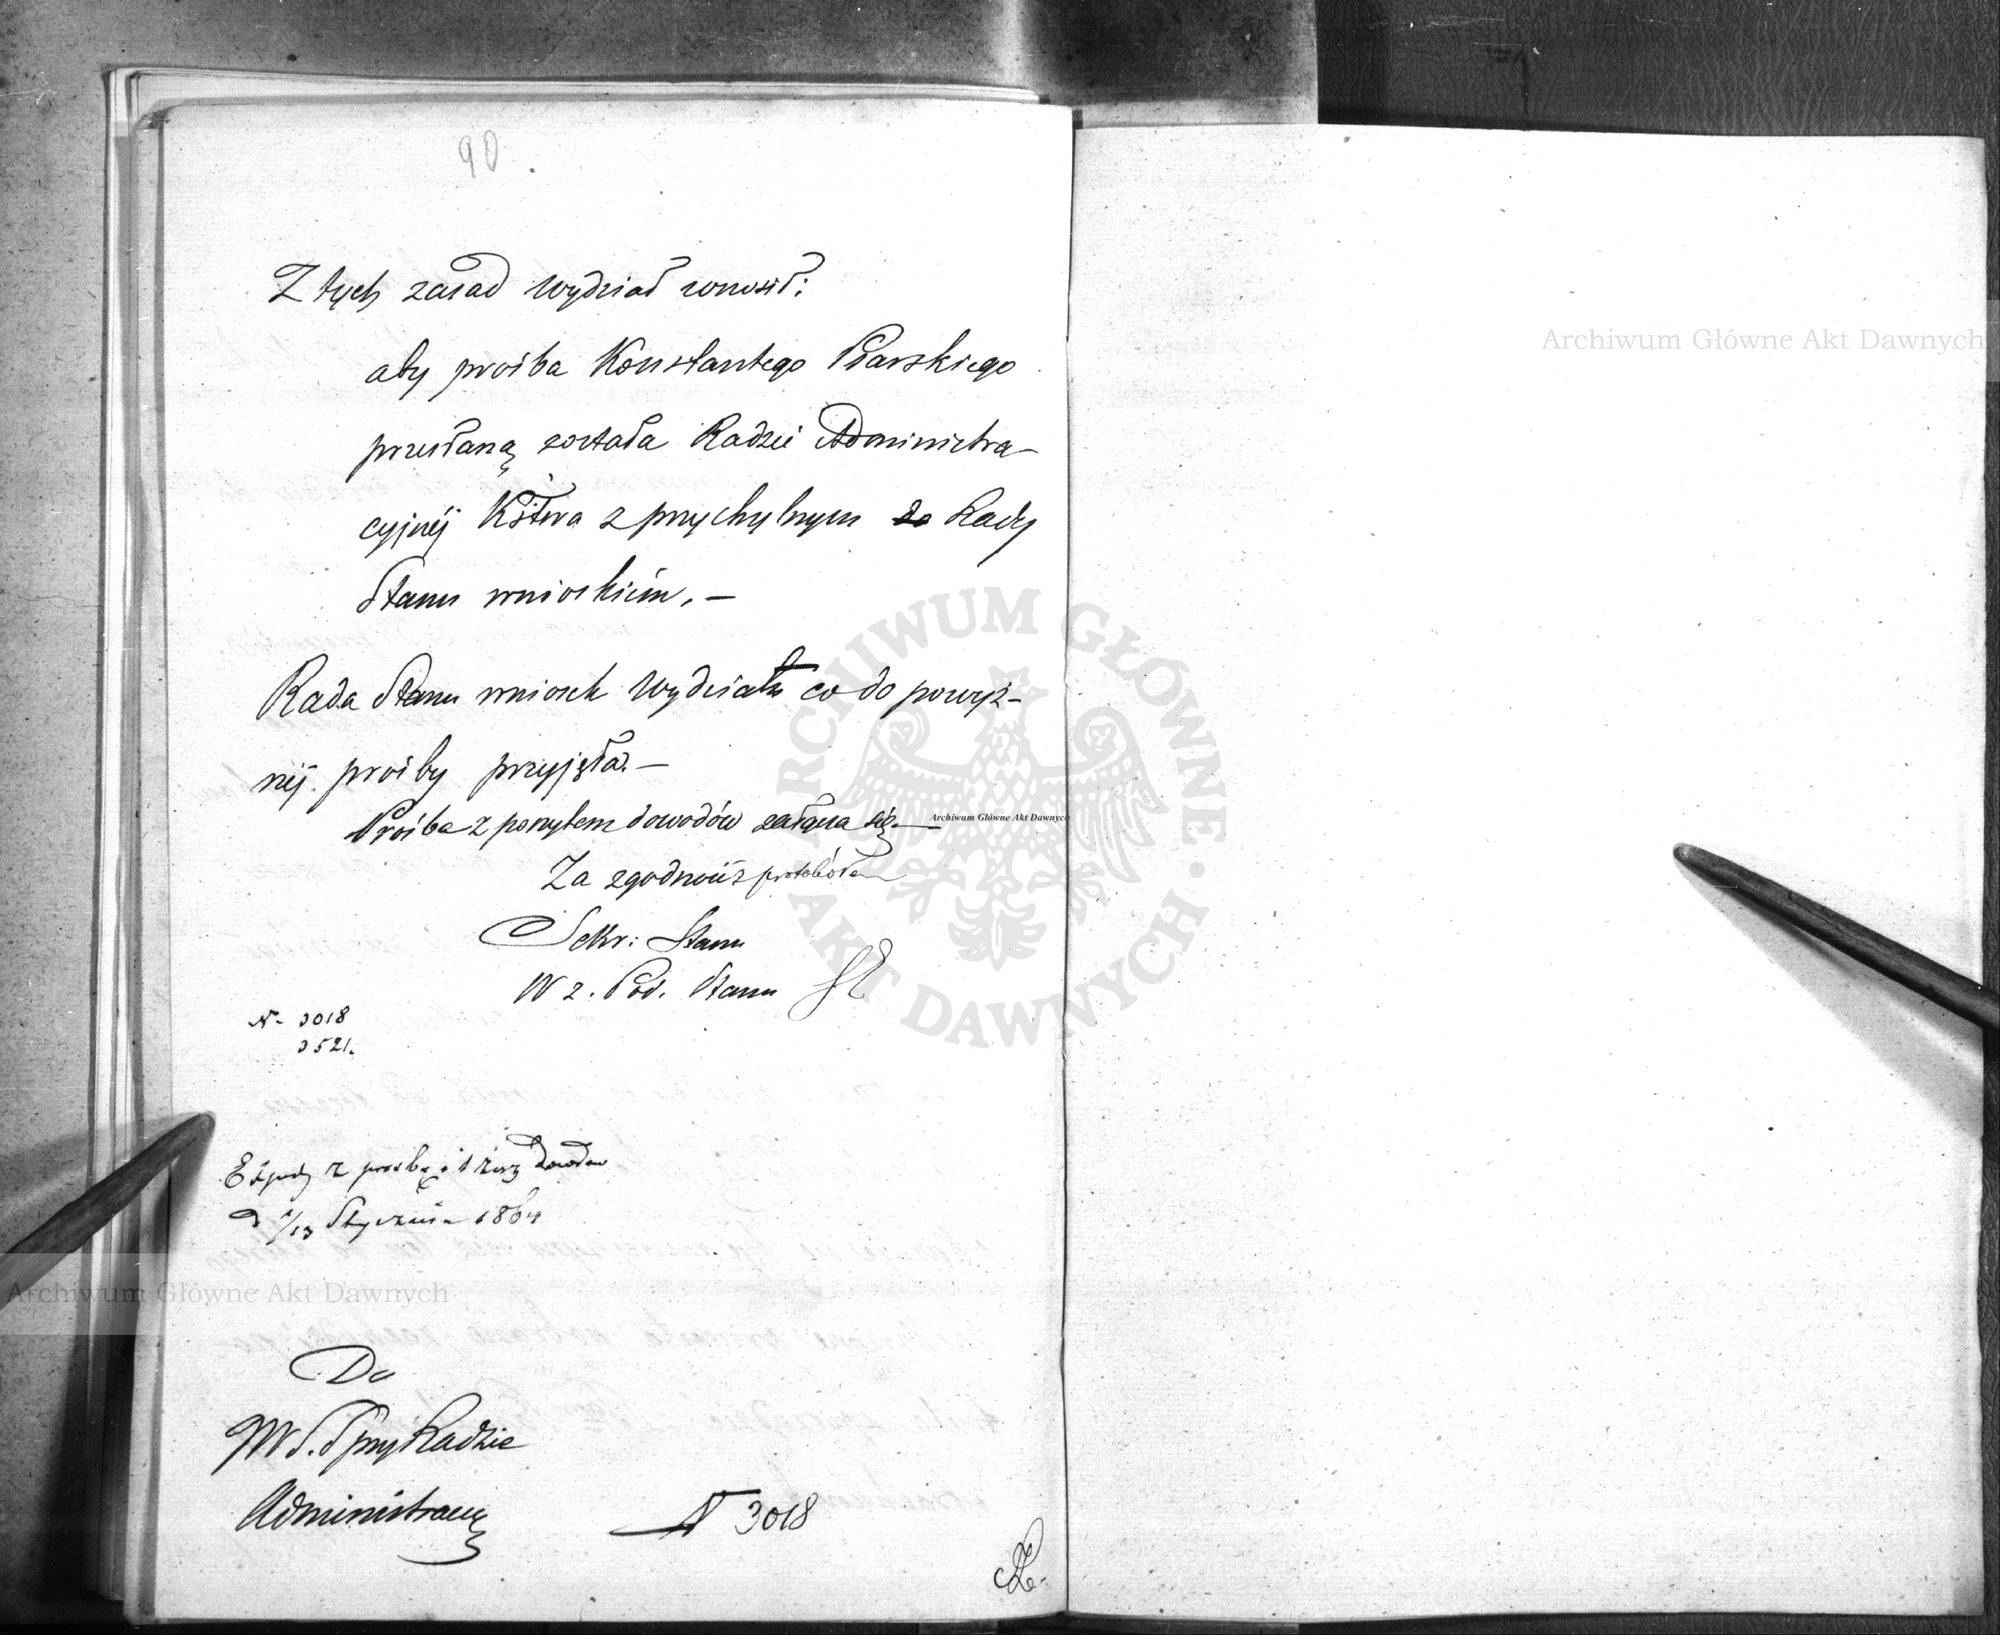 90
Z tych zasad Wydział wnosił:
aby prośba Konstantego Psarskiego
przesłaną została Radzie Administra-
cyjnéj Kstwa z przychylnym do Rady
Stanu wnioskiém. —
Rada Stanu wniosek Wydziału co do powyż-
néj prośby przyjęła. —
Prośba z poszytem dowodów załącza się. —
Za zgodność z protokółem
Sekr: Stanu
W z. Pod. Stanu
N- 3018
3521.
z prośbą i dowodów
d 1/13 Stycznia 1864
Do
przy Radzie
Administracyj
N 3018
Archiwum Główne Akt Dawnych
Archiwum Główne Akt Dawnych
Archiwum Główne Akt Dawnych
ARCHIWUM GŁÓWNE AKT DAWNYCH